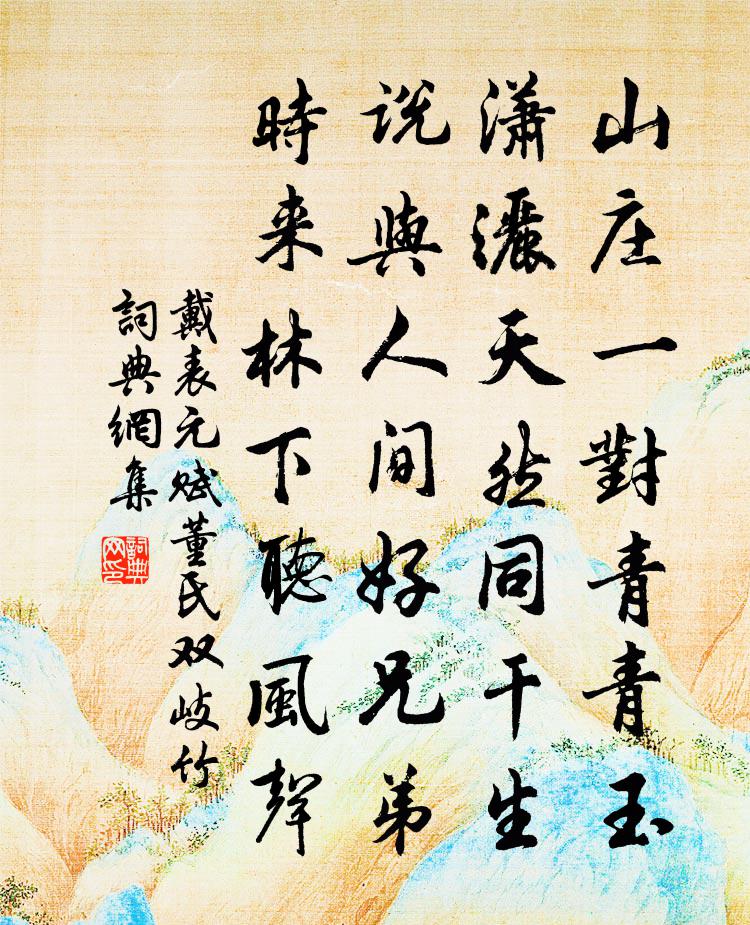 山庄一對青青玉
瀟灑天然同干生
説與人间好兄弟
時来林下聴風聲
戴表元赋董氏双歧竹
詞典網集
詞典网印